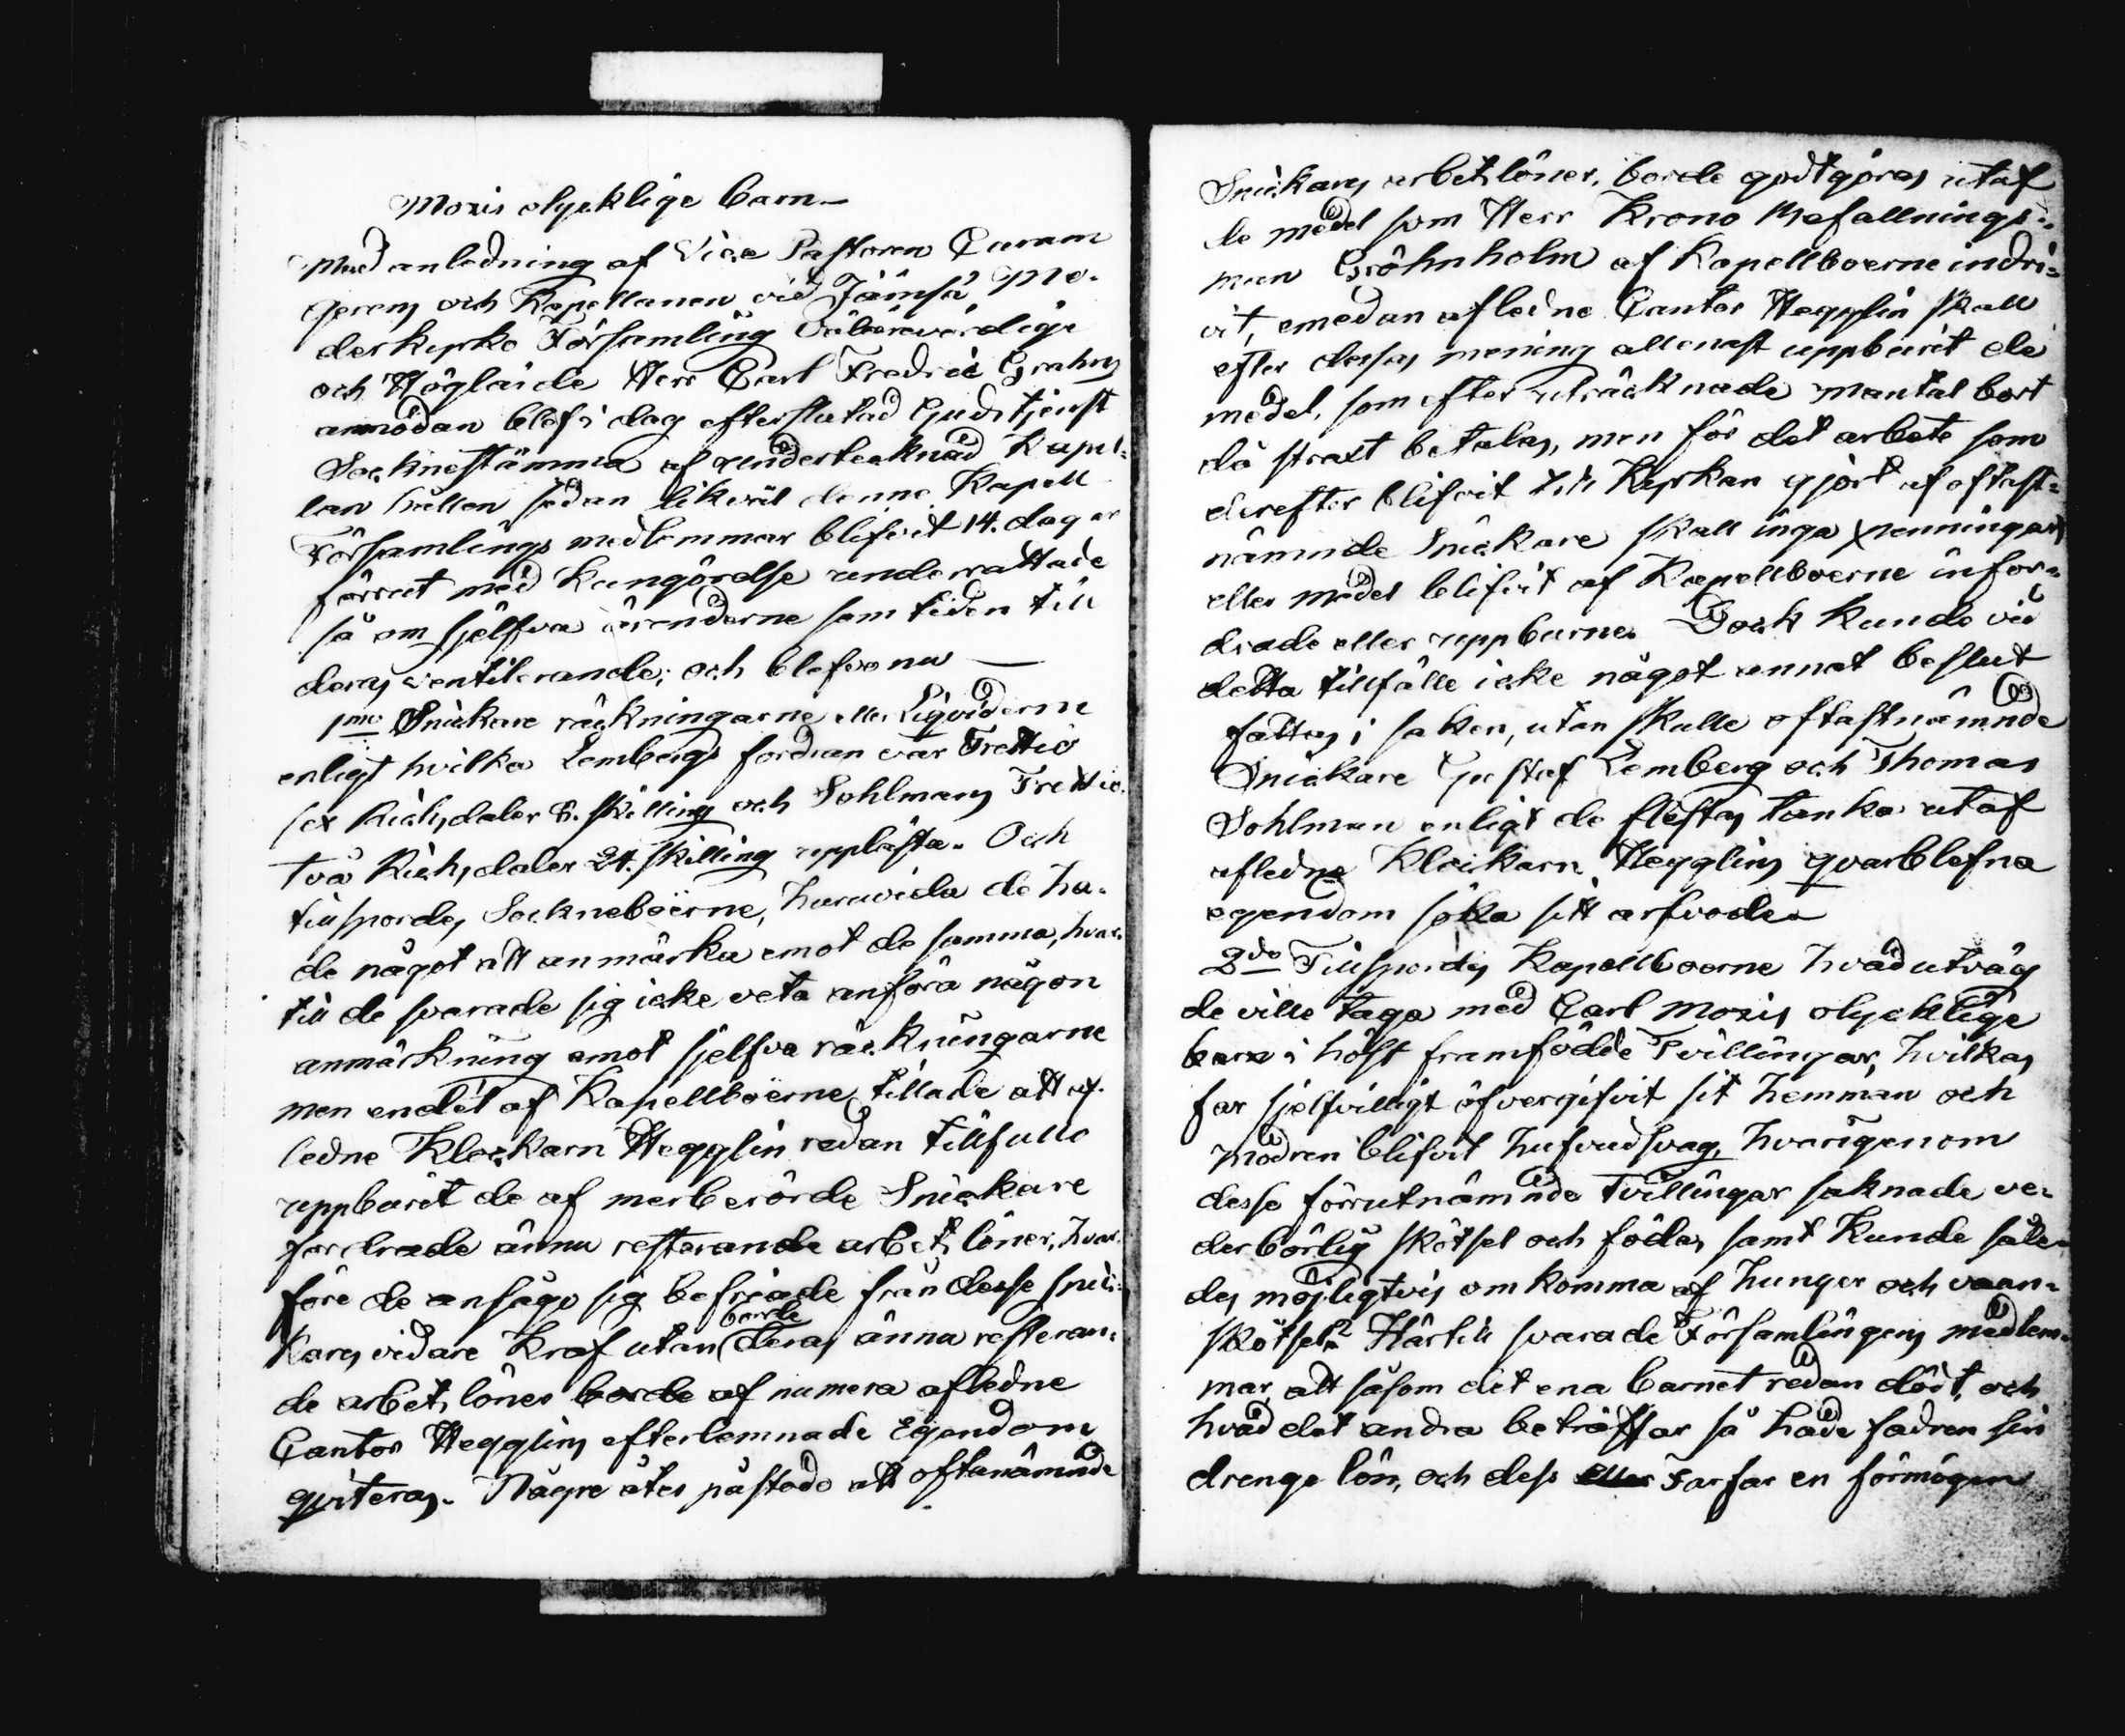 Moxis olycklige barn.
Med anledning af Vice Pastoren Curam
gerens och Kapellanen vid Jämsä Mo-
derkyrko Församling Välärevördige
och Höglärde Herr Carl Fredric Grahns
anmodan blef i dag efter slutad Gudstjenst
Socknestämma af undertecknad Kapel-
lan hållen sedan likväl denne Kapell
Församlings medlemmar blifvit 14. dagar
förrut med kungörelse underrättade
så om sjelfva ärenderne som tiden till
deras ventilerande; och blefvo nu —
1mo Snickare räckningarne eller Liqviderne
enligt hvilka Lembergs fordran var Trettio
sex Riksdaler 8. skilling och Sohlmans Trettio
två Riksdaler 24. skilling upplästa. Och
tillspordes Sockneboerne, huruvida de ha-
de något att anmärka emot de samma, hvar-
till de svarade sig icke veta anföra någon
anmärkning emot sjelfva räckningarne
men endel af Kapellboerne tillade att af-
ledne Klockarn Hegglin redan tillfullo
uppburit de af merberörde Snickare
fordrade ännu resterande arbets löner, hvar-
före de ansågo sig befriade från desse Snic-
kares vidare kraf utan borde deras ännu resteran-
de arbets löner borde af numera afledne
Cantor Hegglins efterlemnade Egendom
qviteras. Någre åter påstodo att oftanämnde
Snickares arbetslöner, borde godtgöras utaf
de medel som Herr Krono Befallnings-
man Gröhnholm af Kapellboerne indri-
vit, emedan afledne Cantor Hegglin skall
efter dessas mening allenast uppburit de
medel, som efter uträcknade mantal bort
då straxt betalas, men för det arbete som
derefter blifvit till Kyrkan gjort af oftast-
nämnde Snickare skall inga penningar
eller medel blifvit af Kapellboerne infor-
drade eller uppburne. Dock kunde vid
detta tillfälle icke något annat beslut
fattas i saken, utan skulle oftastnämnde
Snickare Gustaf Lemberg och Thomas
Sohlman enligt de flestas tanka utaf
afledne Klockarn Hegglins qvarblefna
egendom söka sitt arfvode.
2do Tillspordes Kapellboerne hvad utväg
de ville taga med Carl Moxis olycklige
barn i höst framfödde Tvillingar, hvilkas
far sjelfvilligt öfvergifvit sit hemman och
modren blifvit hufvudsvag, hvarigenom
desse förrutnämnde Tvillingar saknade ve-
derbörlig skötsel och föda, samt kunde såle-
des möjligtvis omkomma af hunger och van-
skötsel? Härtill svarade Församlingens medlem-
mar, att såsom det ena barnet redan dödt, och
hvad det andra beträffar så hade fadren sin
drenge lön, och dess eller Farfar en förmögen